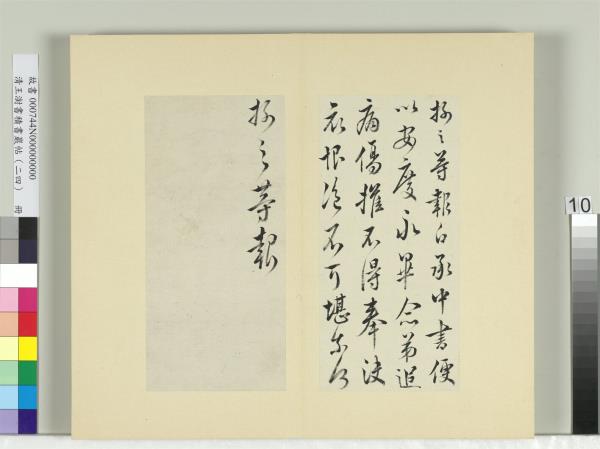 故書 000744N000000000
清王澍書積書巖帖(二四) 冊
之等報白承中書便
以安度永畢念弟追
痛傷摧不得奉訣
哀恨 不可堪
之等報
10